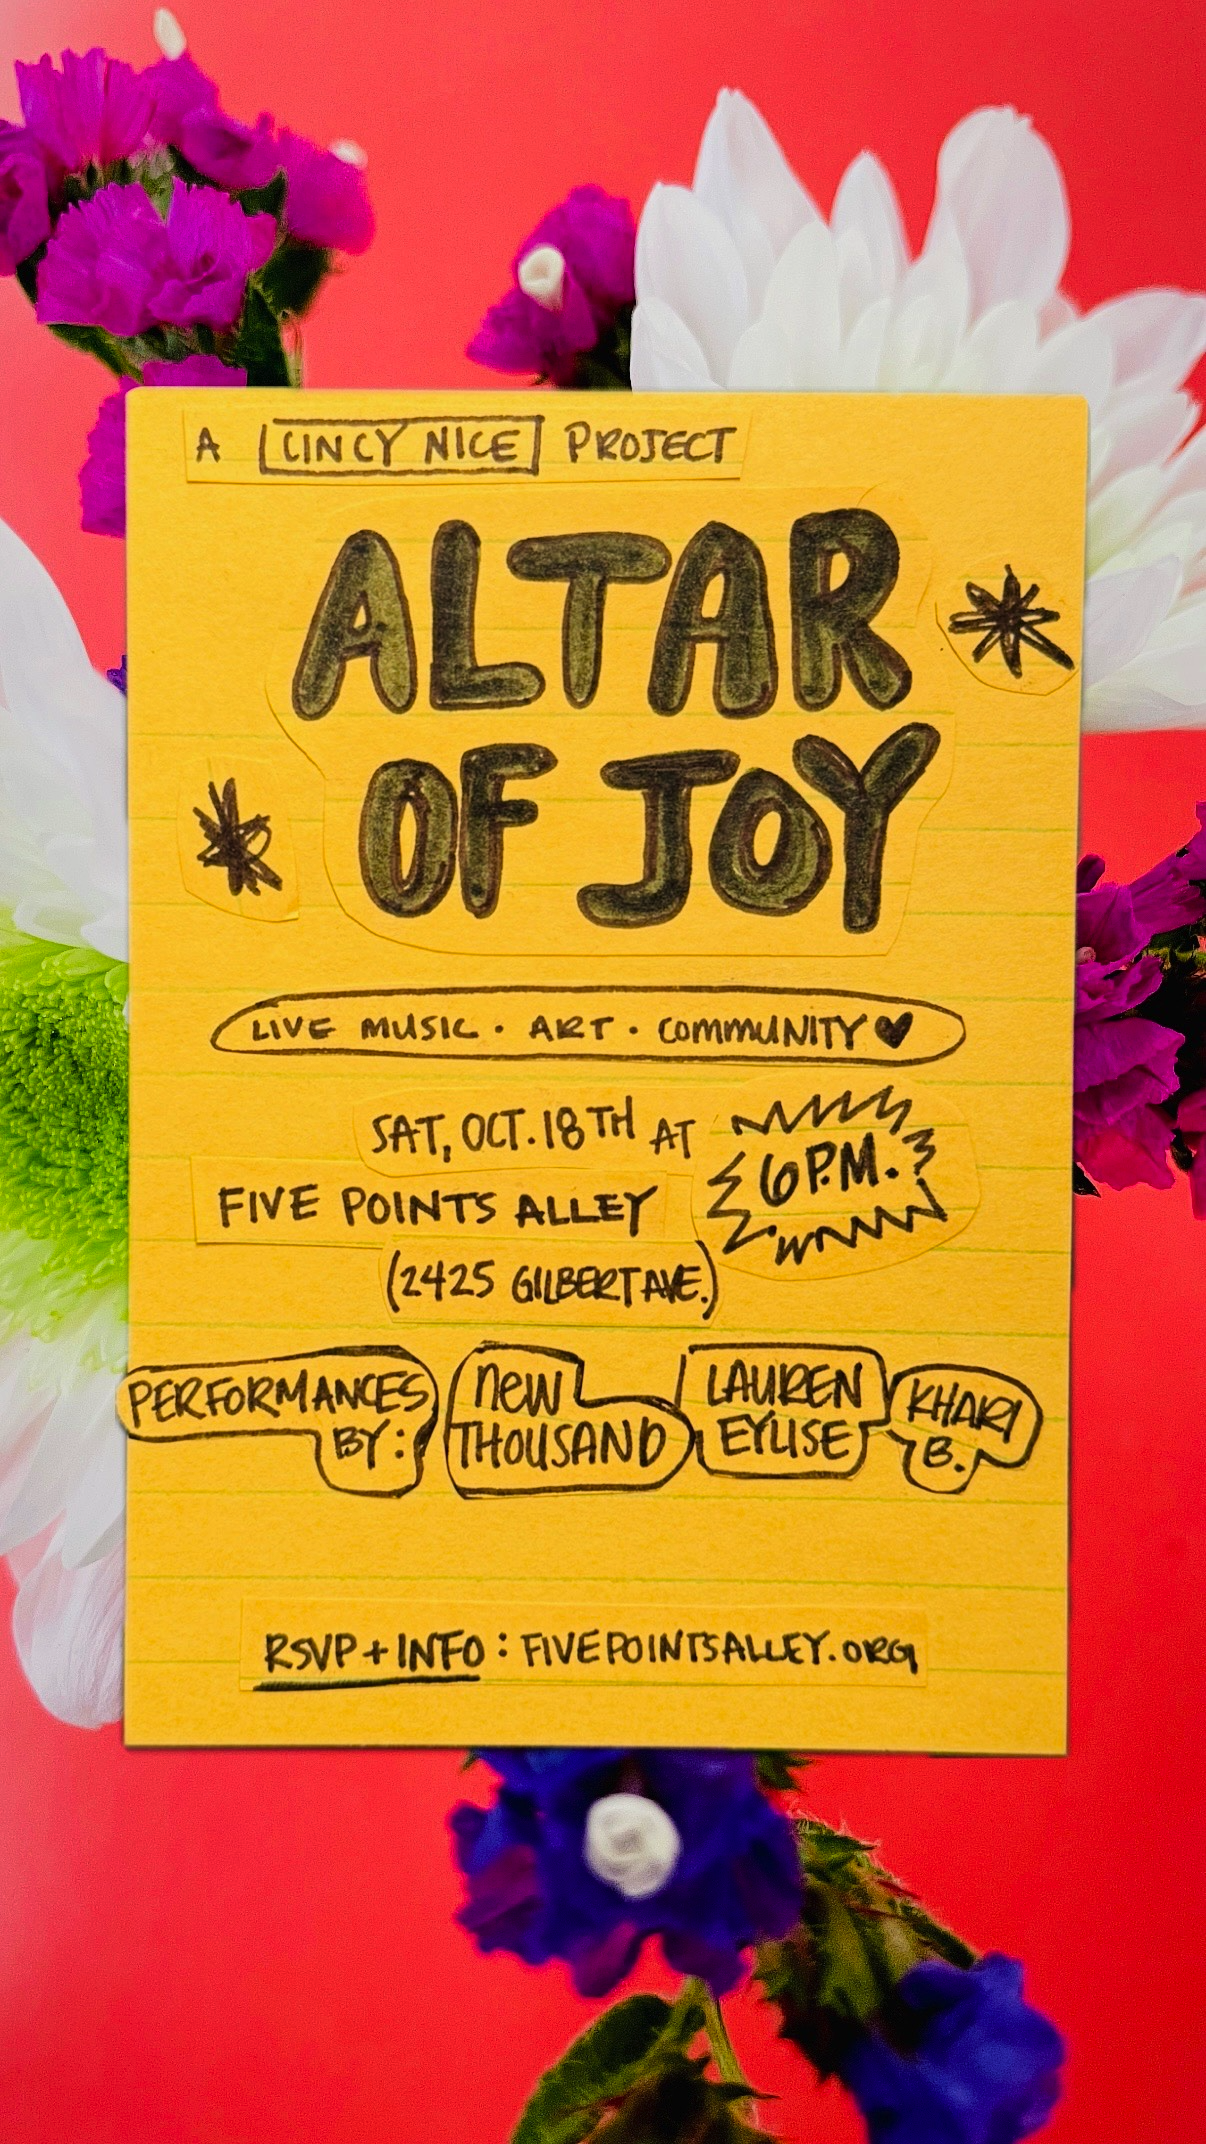 A CINCY NICE PROJECT
ALTAR
OF JOY
LIVE MUSIC · ART · COMMUNITY ♥
SAT, OCT. 18TH AT
6 P.M.
FIVE POINTS ALLEY
(2425 GILBERT AVE.)
PERFORMANCES
BY:
NEW
THOUSAND
LAUREN
EYLISE
KHARI
B.
RSVP + INFO: FIVEPOINTSALLEY.ORG